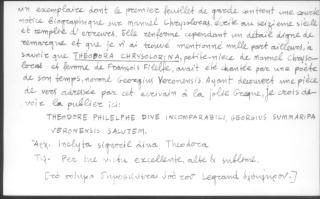 un exemplaire dont le premier feuillet de garde contient une courte
notice biographique sur Manuel Chrysoloras, écrite au seizième siècle
et remplie d'erreurs. Elle renferme cependant un détail digne de
remarque et que je n'ai trouvé mentionné nulle part ailleurs, à
savoir que THEODORA CHRYSOLORINA, petite-nièce de Manuel Chryso-
loras et femme de François Filelfe, avait été chantée par un poète
de son temps, nommé Georgius Veronensis. Ayant découvert une pièce
de vers adressée par cet écrivain à la jolie Grecque, je crois de-
voir la publier ici:
THEODORE PHILELPHE DIVE INCOMPARABILI, GEORGIUS SUMMARIPA
VERONENSIS SALUTEM.
Ἀρχ. Inclyta diva Theodora
Τελ. Per tue virtu excellente, alte & sublime.
Legrand